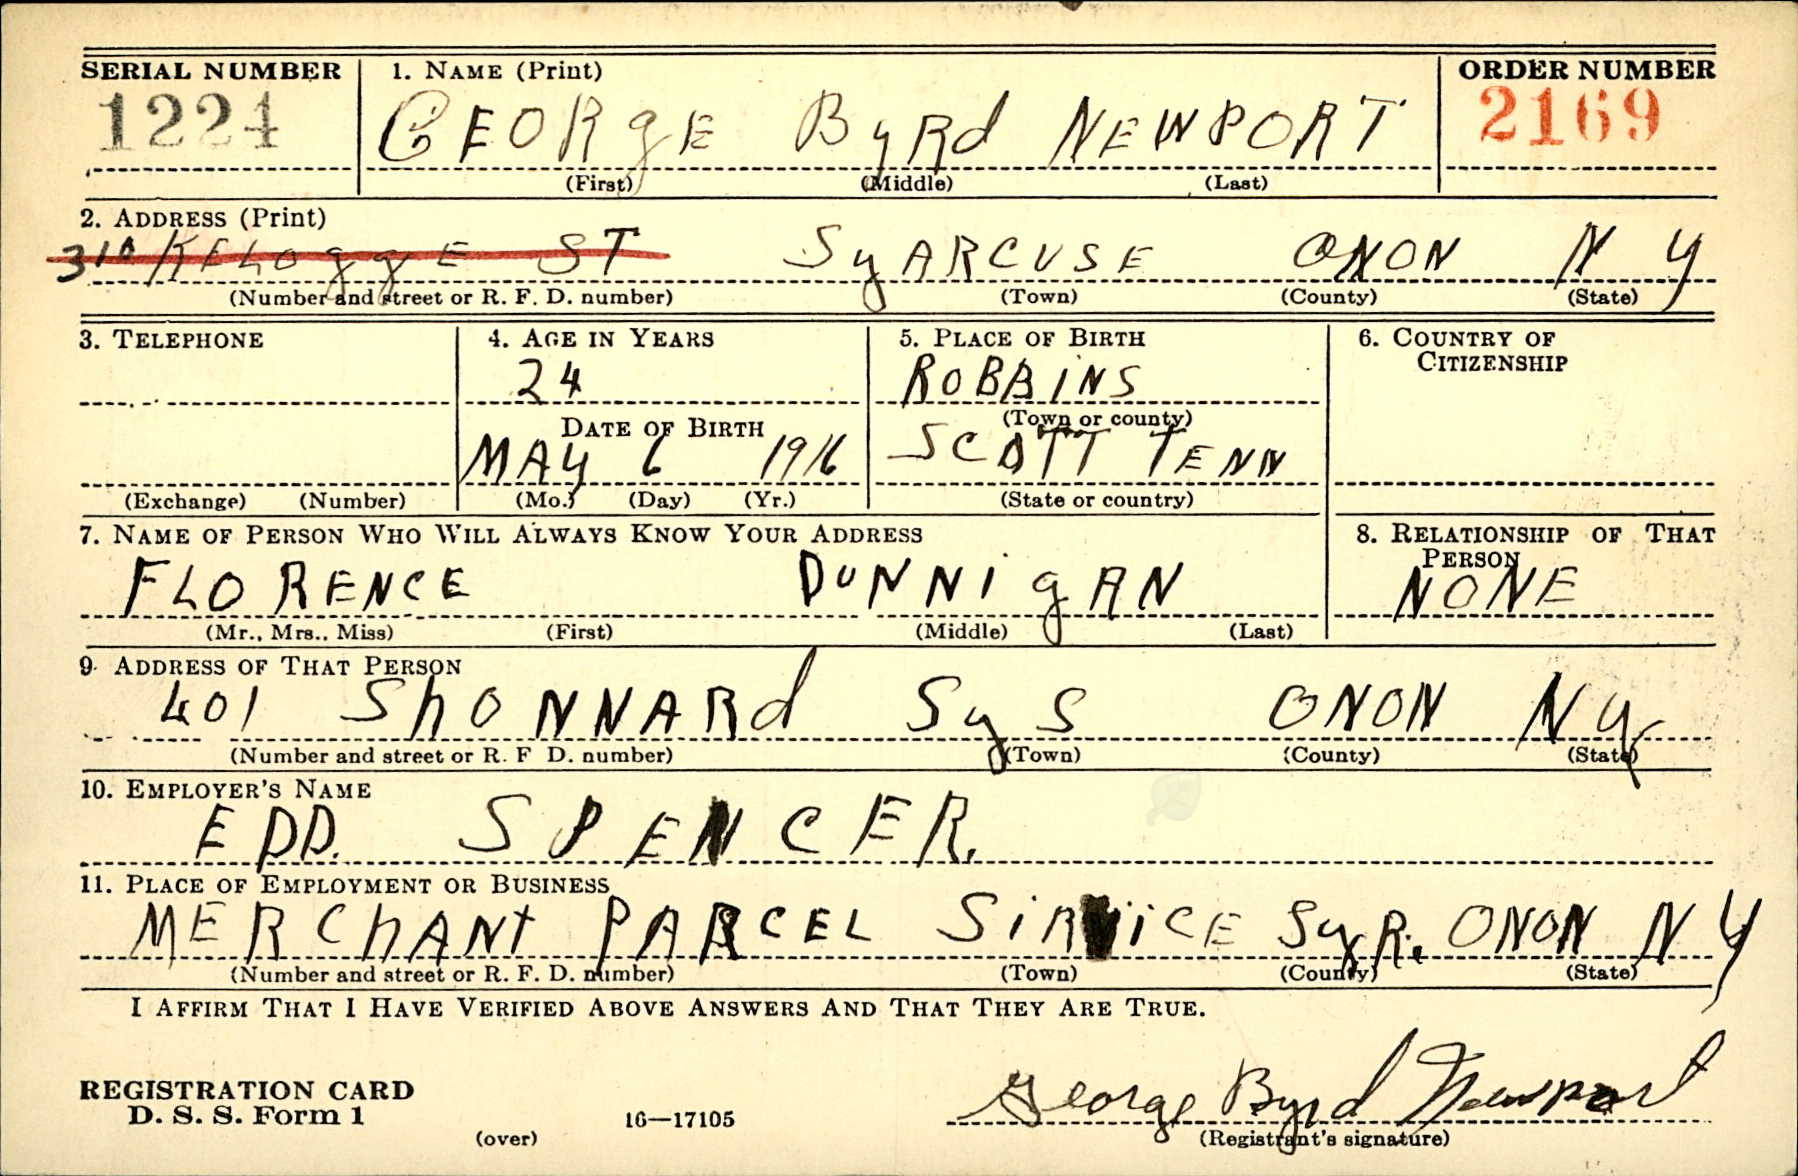 SERIAL NUMBER 1. NAME (Print) ORDER NUMBER
1224 GEORgE ByRd NEWPORT 2169
(First) (Middle) (Last)
2. ADDRESS (Print)
310 KELOggE ST SyARCUSE ONON N y
(Number and street or R. F. D. number) (Town) (County) (State)
3. TELEPHONE 4. AGE IN YEARS 5. PLACE OF BIRTH 6. COUNTRY OF
CITIZENSHIP
24 ROBBINS
(Town or county)
DATE OF BIRTH
MAy 6 1916 SCOTT TENN
(Exchange) (Number) (Mo.) (Day) (Yr.) (State or country)
7. NAME OF PERSON WHO WILL ALWAYS KNOW YOUR ADDRESS 8. RELATIONSHIP OF THAT
PERSON
FLORENCE DUNNIgAN NONE
(Mr., Mrs., Miss) (First) (Middle) (Last)
9. ADDRESS OF THAT PERSON
401 ShONNARd Sy S ONON Ny
(Number and street or R. F. D. number) (Town) (County) (State)
10. EMPLOYER'S NAME
EDD. SPENCER.
11. PLACE OF EMPLOYMENT OR BUSINESS
MERChANt PARCEL SiRViCE SyR. ONON N y
(Number and street or R. F. D. number) (Town) (County) (State)
I AFFIRM THAT I HAVE VERIFIED ABOVE ANSWERS AND THAT THEY ARE TRUE.
George Byrd Newport
REGISTRATION CARD
D. S. S. Form 1 16—17105
(over) (Registrant's signature)